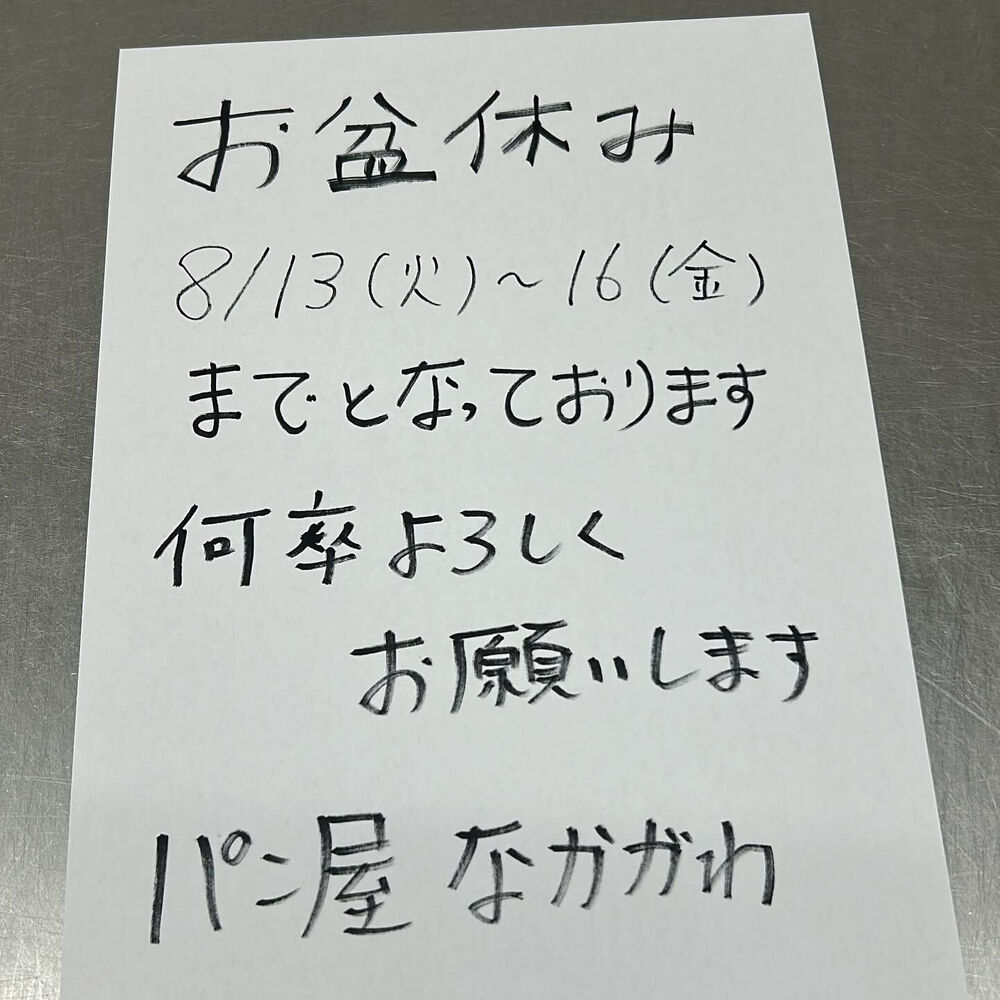 お盆休み
8/13(火)~16(金)
までとなっております
何卒よろしく
お願いします
パン屋 なかがわ